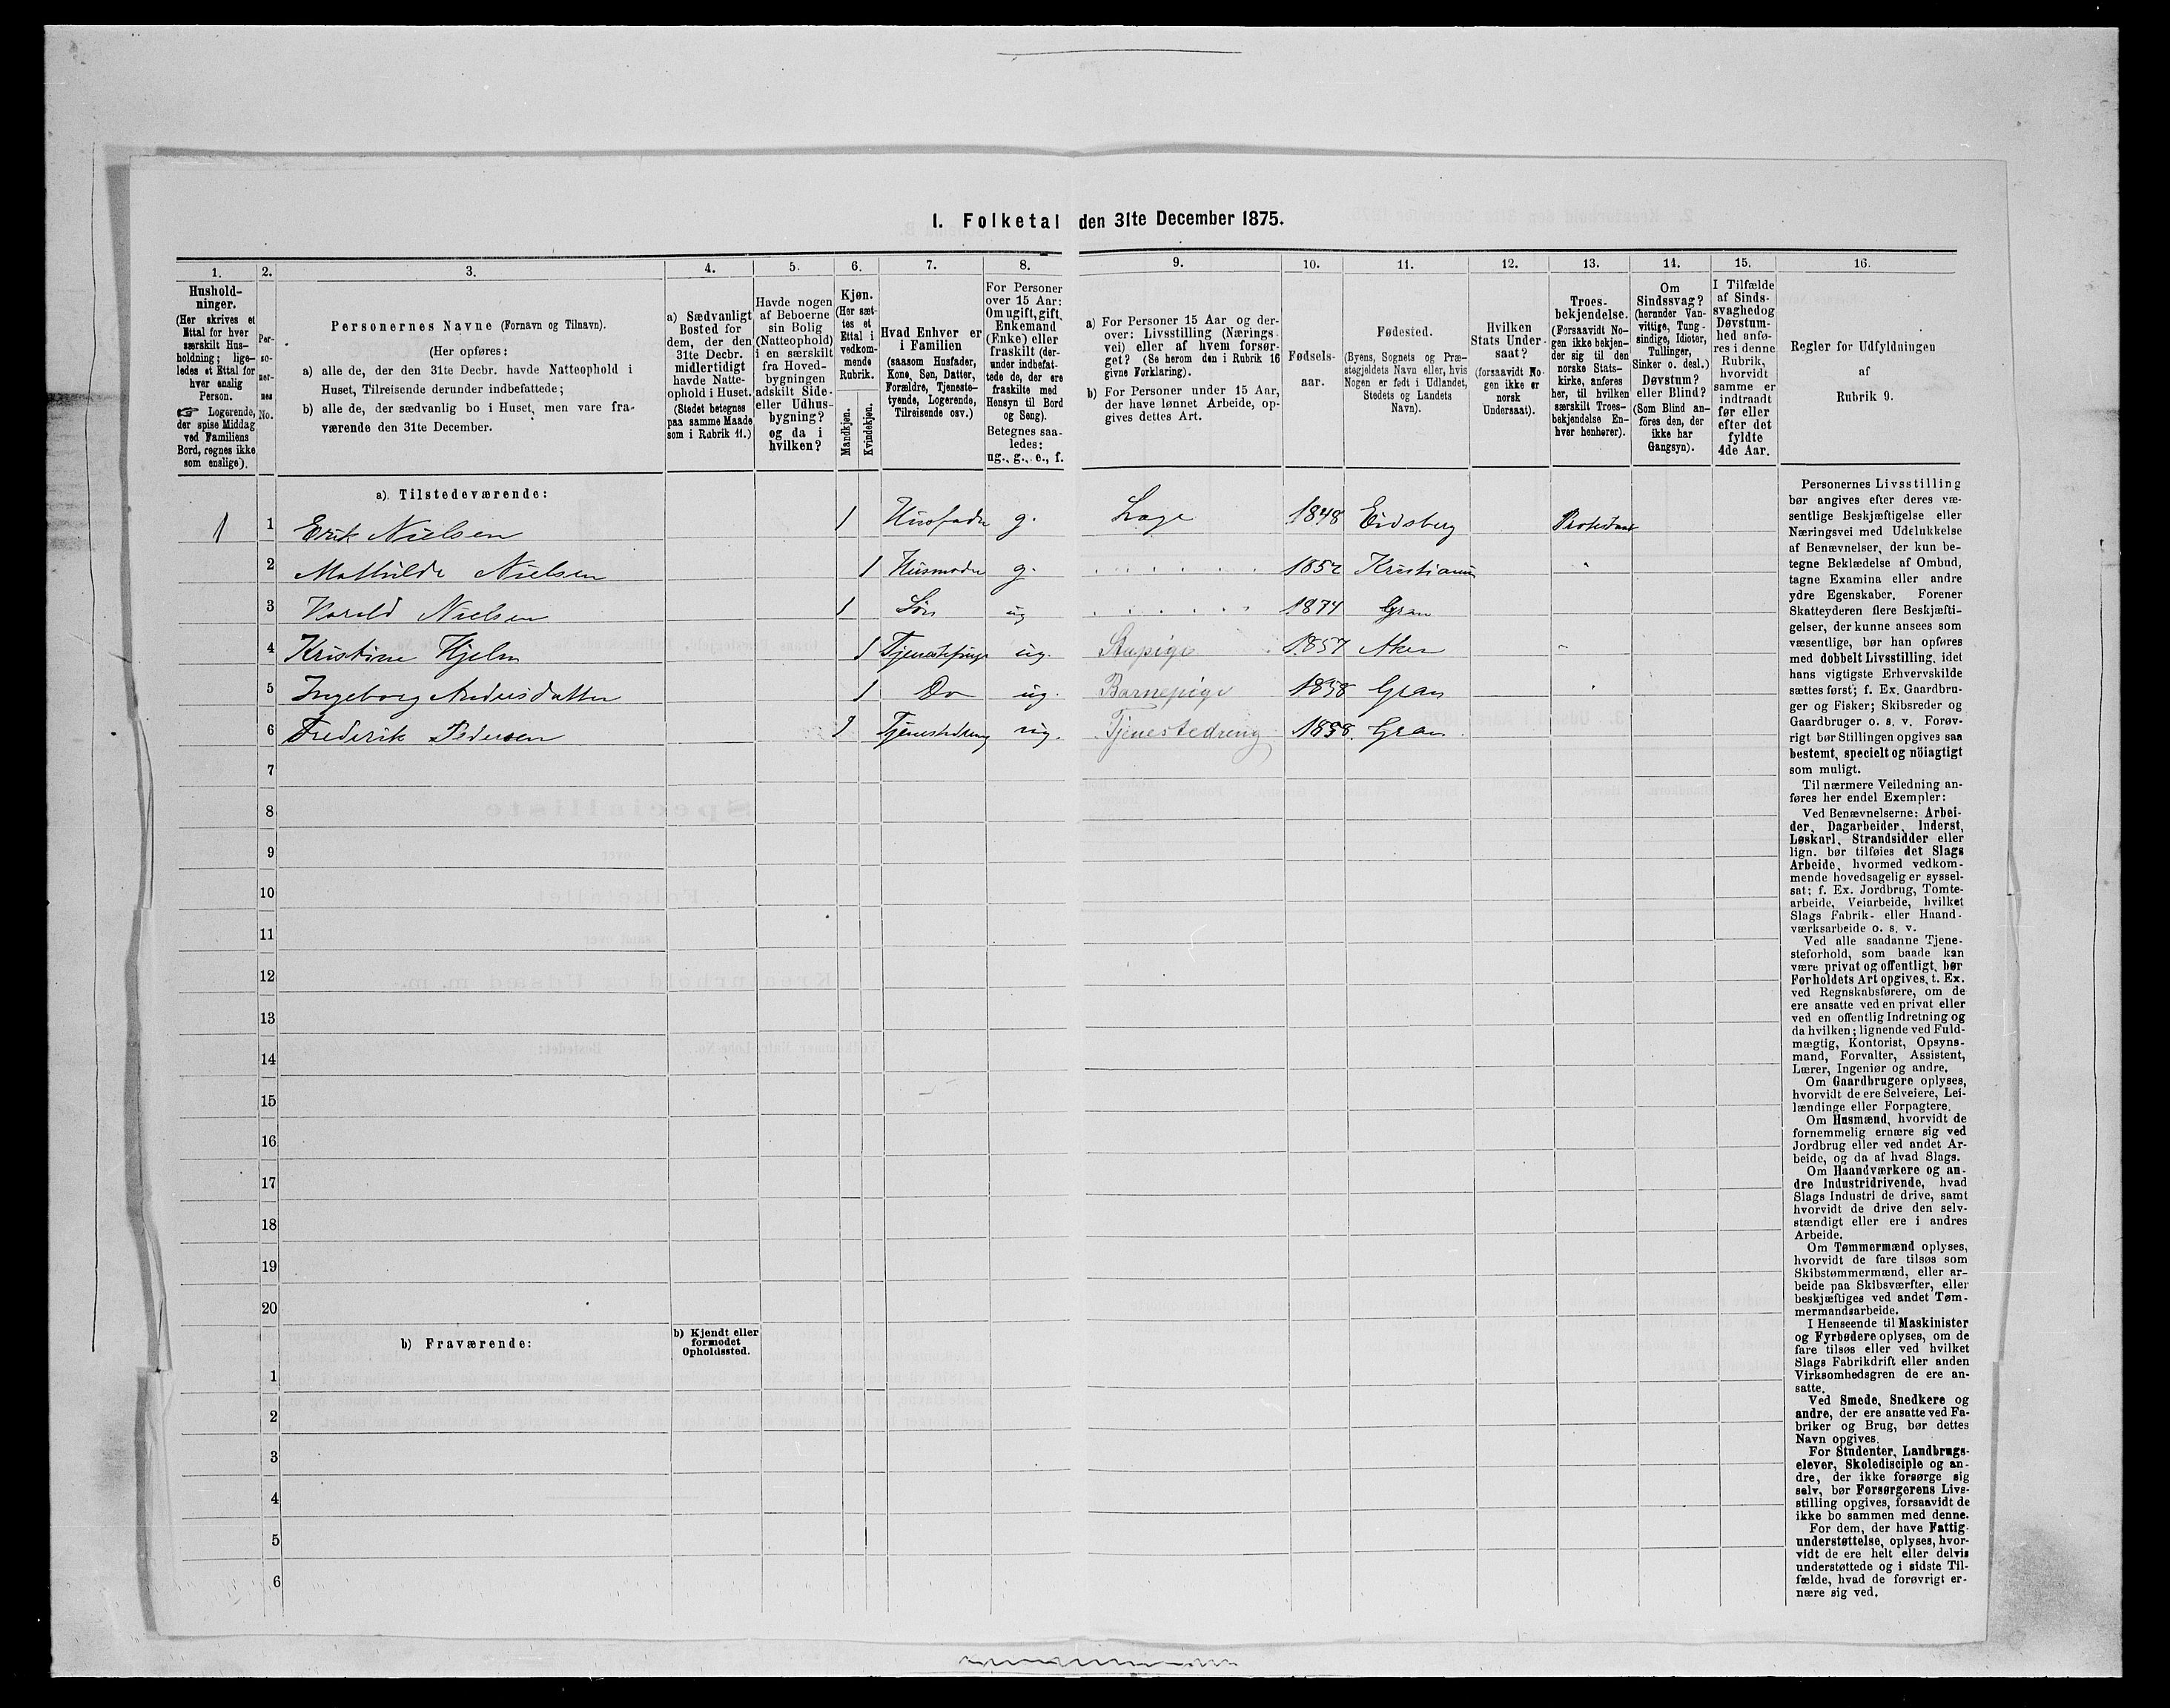 I. Folketal den 31te December 1875.
1. 2. 3. 4. 5. 6. 7. 8. 9. 10. 11. 12. 13. 14. 15. 16.
Hushold-
ninger.
(Her skrives et
Ettal for hver
særskilt Hus-
holdning; lige-
ledes et Ettal for
hver enslig
Person.
☞ Logerende,
der spise Middag
ved Familiens
Bord, regnes ikke
som enslige).
Per-
so-
ner-
nes
No.
Personernes Navne (Fornavn og Tilnavn).
(Her opføres:
a) alle de, der den 31te Decbr. havde Natteophold i
Huset, Tilreisende derunder indbefattede;
b) alle de, der sædvanlig bo i Huset, men vare fra-
værende den 31te December.
a) Sædvanligt
Bosted for
dem, der den
31te Decbr.
midlertidigt
havde Natte-
ophold i Huset.
(Stedet betegnes
paa samme Maade
som i Rubrik 11.)
Havde nogen
af Beboerne
sin Bolig
(Natteophold)
i en særskilt
fra Hoved-
bygningen
adskilt Side-
eller Udhus-
bygning?
og da i
hvilken?
Kjøn.
(Her sæt-
tes et
Ettal i
vedkom-
mende
Rubrik.
Mandkjøn.
Kvindekjøn.
Hvad Enhver er
i Familien
(saasom Husfader,
Kone, Søn, Datter,
Forældre, Tjeneste-
tyende, Logerende,
Tilreisende osv.)
For Personer
over 15 Aar:
Om ugift, gift,
Enkemand
(Enke) eller
fraskilt (der-
under indbefat-
tede de, der ere
fraskilte med
Hensyn til Bord
og Seng).
Betegnes saa-
ledes:
ug., g., e., f.
a) For Personer 15 Aar og der-
over: Livsstilling (Nærings-
vei) eller af hvem forsør-
get? (Se herom den i Rubrik 16
givne Forklaring).
b) For Personer under 15 Aar,
der have lønnet Arbeide, op-
gives dettes Art.
Fødsels-
aar.
Fødested.
(Byens, Sognets og Præ-
stegjeldets Navn eller, hvis
Nogen er født i Udlandet,
Stedets og Landets
Navn).
Hvilken
Stats Under-
saat?
(forsaavidt No-
gen ikke er
norsk
Undersaat).
Troes-
bekjendelse.
(Forsaavidt No-
gen ikke bekjen-
der sig til den
norske Stats-
kirke, anføres
her, til hvilken
særskilt Troes-
bekjendelse En-
hver henhører).
Om
Sindssvag?
(herunder Van-
vittige, Tung-
sindige, Idioter,
Tullinger,
Sinker o. desl.)
Døvstum?
eller Blind?
(Som Blind an-
føres den, der
ikke har
Gangsyn).
I Tilfælde
af Sinds-
svaghed og
Døvstum-
hed anfø-
res i denne
Rubrik,
hvorvidt
samme er
indtraadt
før eller
efter det
fyldte
4de Aar.
Regler for Udfyldningen
af
Rubrik 9.
a) Tilstedeværende:
1 1 Erik Nielsen 1 Husfader g. Læge 1848 Eidsberg
2 Mathilde Nielsen 1 Husmoder g. 1852 Kristiania
3 Harald Nielsen 1 Søn ug 1874 Gran
4 Kristine Hjelm 1 Tjenestepige ug. Stupige 1857 Aker
5 Ingeborg Andersdatter 1 Do ug. Barnepige 1858 Gran
6 Frederik Pedersen 1 Tjenestedreng ug. Tjenestedreng 1858. Gran
7
8
9
10
11
12
13
14
15
16
17
18
19
20
b) Fraværende:
b) Kjendt eller
formodet
Opholdssted.
1
2
3
4
5
6
Personernes Livsstilling
bør angives efter deres væ-
sentlige Beskjæftigelse eller
Næringsvei med Udelukkelse
af Benævnelser, der kun be-
tegne Beklædelse af Ombud,
tagne Examina eller andre
ydre Egenskaber. Forener
Skatteyderen flere Beskjæfti-
gelser, der kunne ansees som
væsentlige, bør han opføres
med dobbelt Livsstilling, idet
hans vigtigste Erhvervskilde
sættes først; f. Ex. Gaardbru-
ger og Fisker; Skibsreder og
Gaardbruger o. s. v. Forøv-
rigt bør Stillingen opgives saa
bestemt, specielt og nöiagtigt
som muligt.
Til nærmere Veiledning an-
føres her endel Exempler:
Ved Benævnelserne: Arbei-
der, Dagarbeider, Inderst,
Løskarl, Strandsidder eller
lign. bør tilføies det Slags
Arbeide, hvormed vedkom-
mende hovedsagelig er syssel-
sat; f. Ex. Jordbrug, Tomte-
arbeide, Veiarbeide, hvilket
Slags Fabrik- eller Haand-
værksarbeide o. s. v.
Ved alle saadanne Tjene-
steforhold, som baade kan
være privat og offentligt, bør
Forholdets Art opgives, t. Ex.
ved Regnskabsførere, om de
ere ansatte ved en privat eller
ved en offentlig Indretning og
da hvilken; lignende ved Fuld-
mægtig, Kontorist, Opsyns-
mand, Forvalter, Assistent,
Lærer, Ingeniør og andre.
Om Gaardbrugere oplyses,
hvorvidt de ere Selveiere, Lei-
lændinge eller Forpagtere.
Om Husmænd, hvorvidt de
fornemmelig ernære sig ved
Jordbrug eller ved andet Ar-
beide, og da af hvad Slags.
Om Haandværkere og an-
dre Industridrivende, hvad
Slags Industri de drive, samt
hvorvidt de drive den selv-
stændigt eller ere i andres
Arbeide.
Om Tømmermænd oplyses,
hvorvidt de fare tilsøs som
Skibstømmermænd, eller ar-
beide paa Skibsværfter, eller
beskjæftiges ved andet Tøm-
mermandsarbeide.
I Henseende til Maskinister
og Fyrbødere oplyses, om de
fare tilsøs eller ved hvilket
Slags Fabrikdrift eller anden
Virksomhedsgren de ere an-
satte.
Ved Smede, Snedkere og
andre, der ere ansatte ved Fa-
briker og Brug, bør dettes
Navn opgives.
For Studenter, Landbrugs-
elever, Skoledisciple og an-
dre, der ikke forsørge sig
selv, bør Forsørgerens Livs-
stilling opgives, forsaavidt de
ikke bo sammen med denne.
For dem, der have Fattig-
understøttelse, oplyses, hvor-
vidt de ere helt eller delvis
understøttede og i sidste Til-
fælde, hvad de forøvrigt er-
nære sig ved.